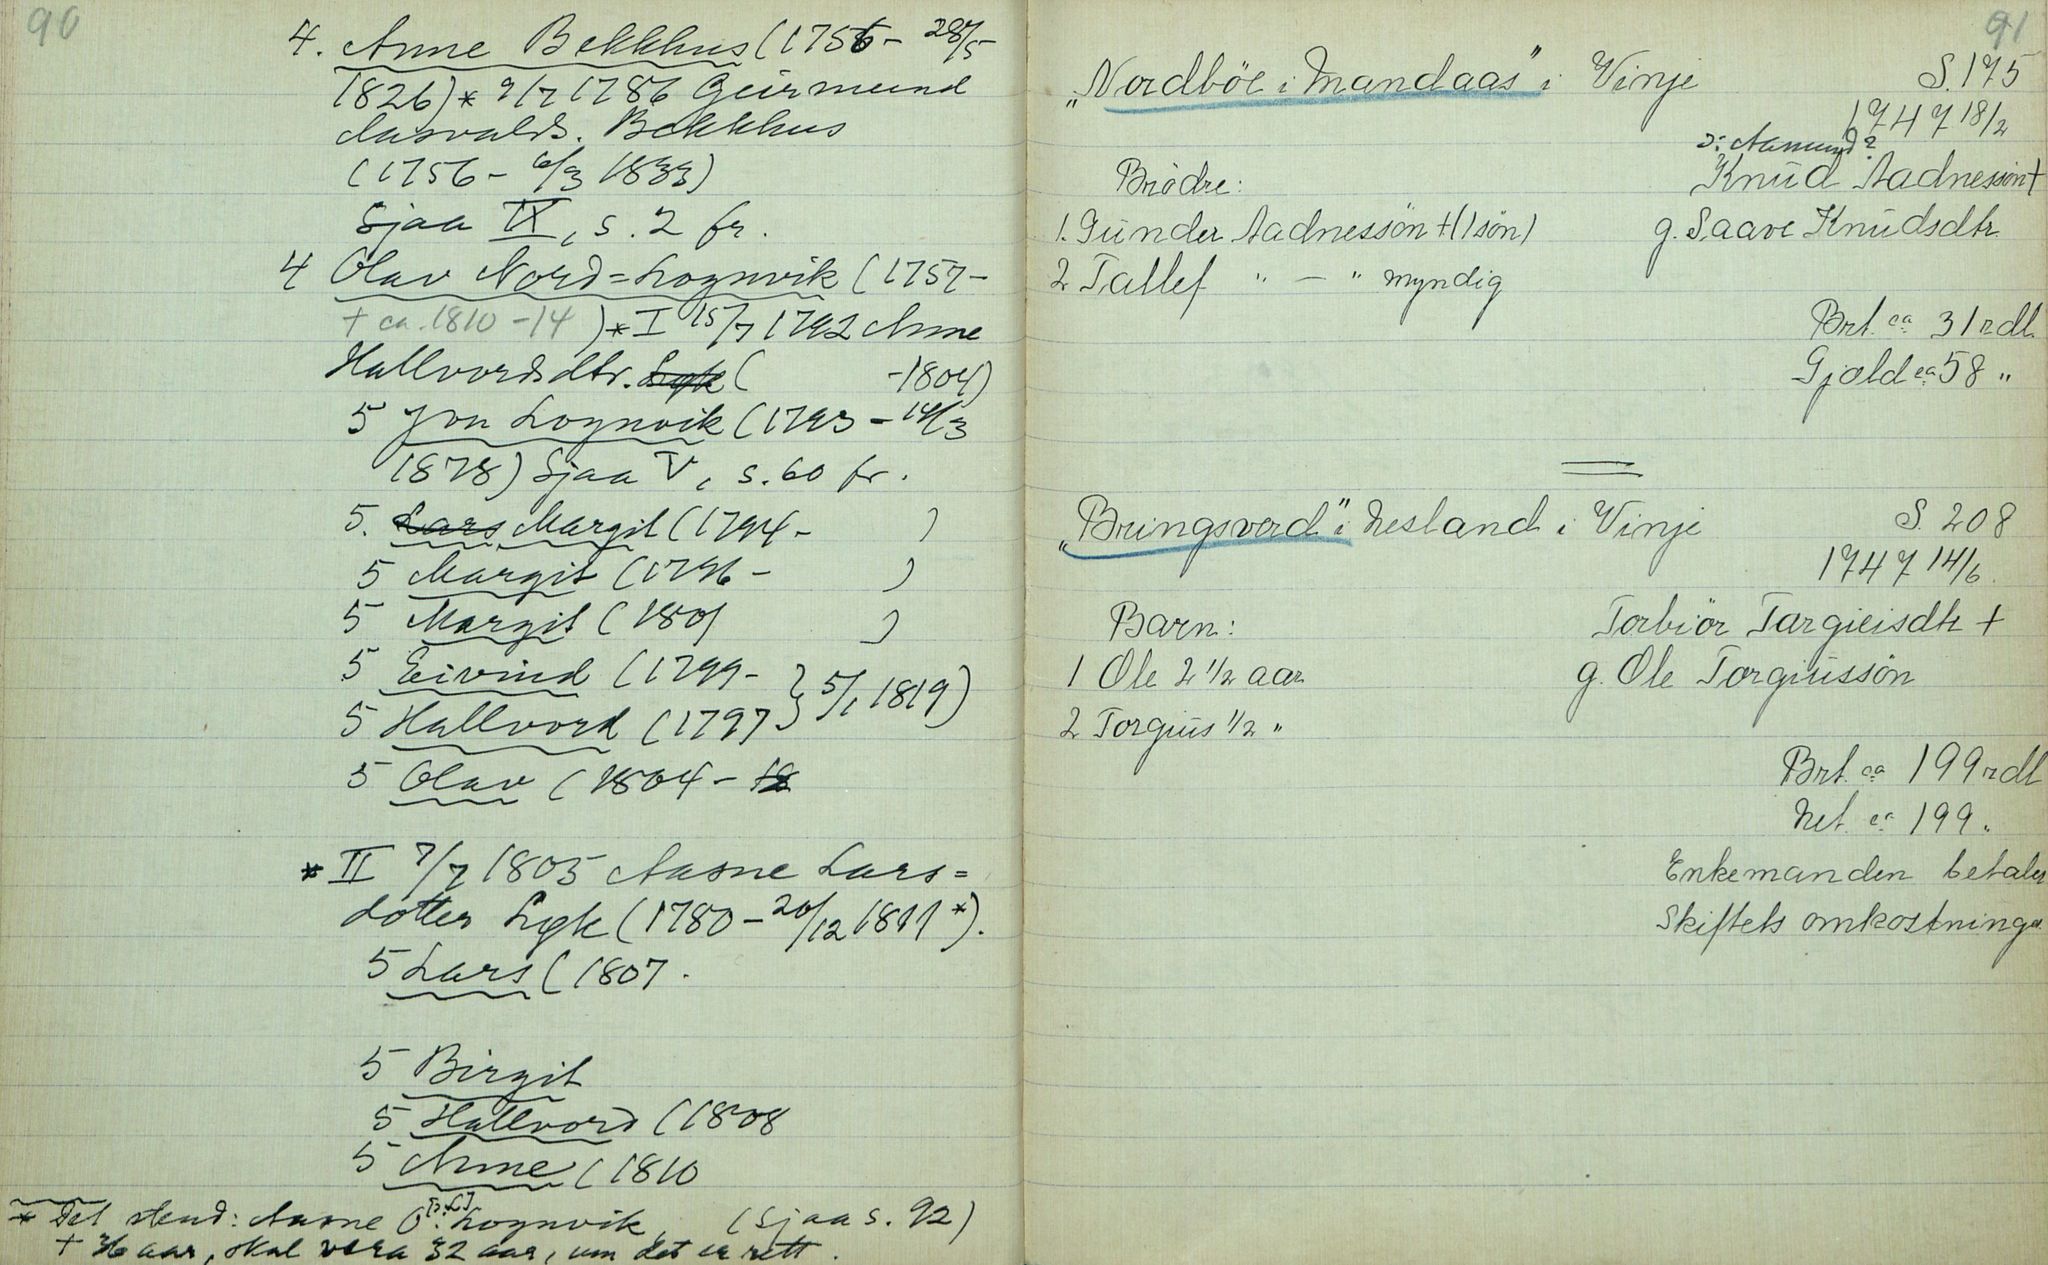 90
4. Anne Bekkhus (1756 – 28/5
1826) * 9/7 1786 Geirmund
Aasvalds. Bekkhus
(1756 – 6/3 1833)
Sjaa IX, s. 2 fr.
4 Olav Nord=Lognvik (1757 –
+ ca. 1810 – 14) * I 15/7 1792 Anne
Hallvordsdtr. Lyk ( – 1804)
5 Jon Lognvik (1793 – 14/3
1878) Sjaa V, s. 60 fr.
5. Lars Margit (1794 – )
5 Margit (1796 – )
5 Margit (1801 )
5 Eivind (1799 –
5 Hallvord (1797 } 5/1 1819)
5 Olav (1804 – 18
* II 7/7 1805 Aasne Lars=
dotter Lyk (1780 – 20/12 1811 *).
5 Lars (1807.
5 Birgit
5 Hallvord (1808
5 Anne (1810
* Det stend: Aasne O. [?: L] Lognvik, (Sjaa s. 92)
+ 36 aar, skal vera 32 aar, um det er rett.
91
"Nordböe i Mandaas" i Vinje S. 175
1747 18/2
ɔ: Aamund?
Brödre: Knud Aadnessön +
1. Gunder Aadnessön + (1 sön) g. Saave Knudsdtr.
2 Tallef " – " myndig
Brt. ca 31 rdl.
Gjæld ca 58 "
"Bringsverd" i Nesland i Vinje S. 208
1747 14/6.
Barn: Torbiör Targieisdtr +
1 Ole 2 1/2 aar g. Ole Torgiussön
2 Torgius 1/2 "
Brt. ca 199 rdl
Net. ca 199 "
Enkemanden betaler
Skiftets omkostninger.